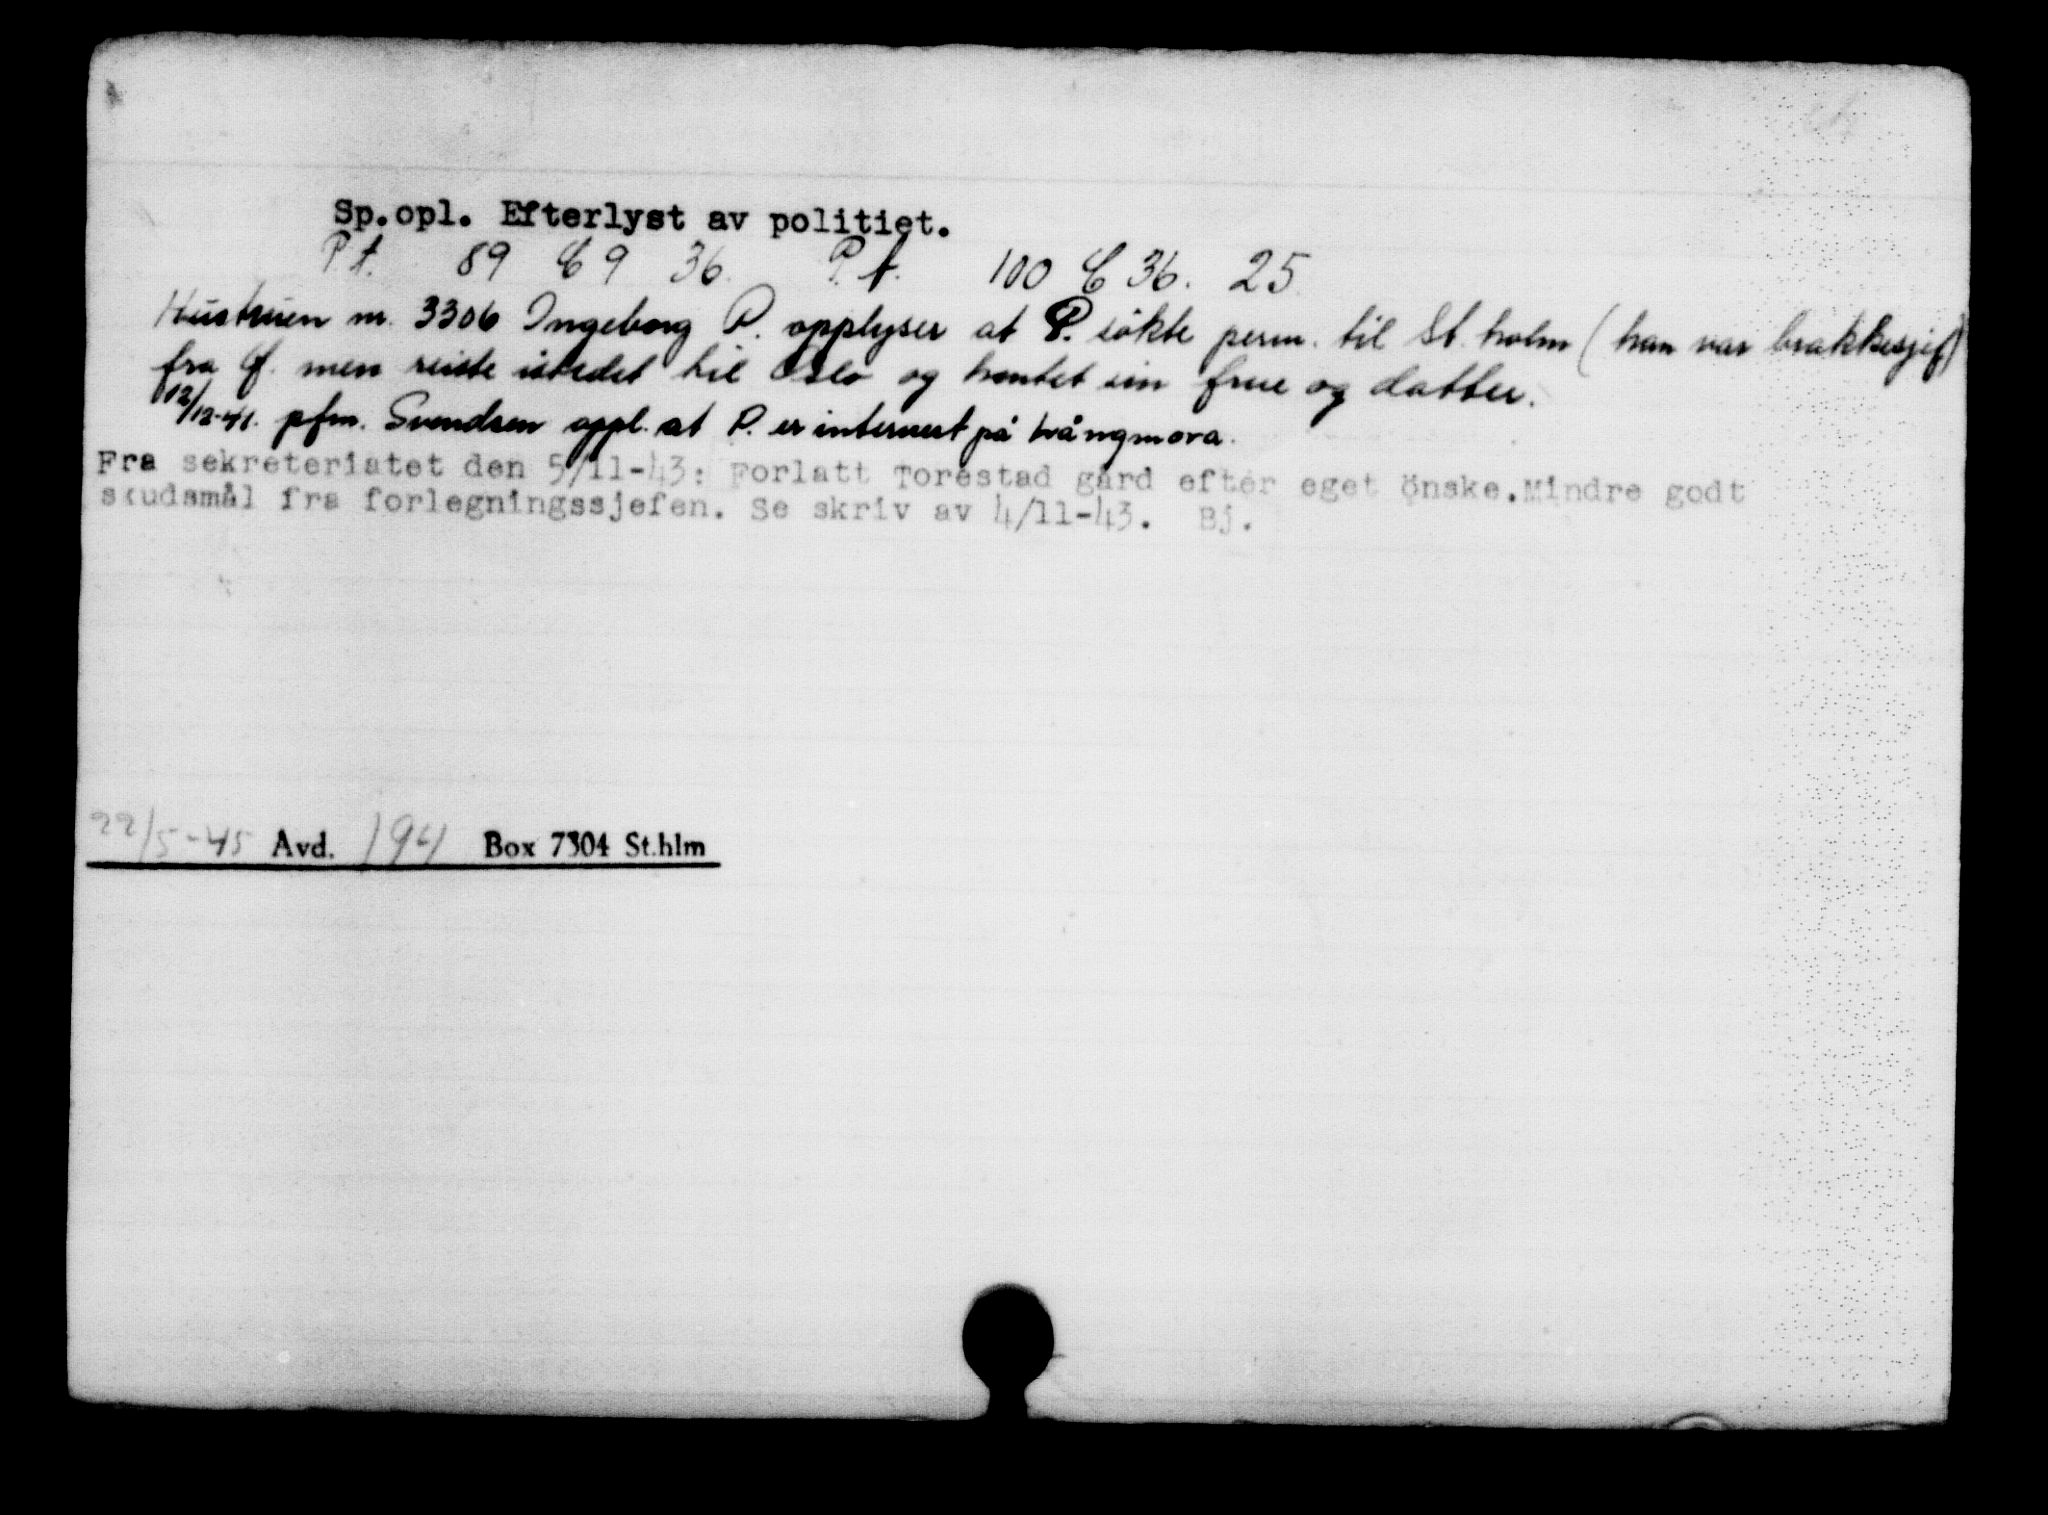 Sp.opl. Efterlyst av politiet.
P.t. 89 C 9 36. P.t. 100 C 36. 25
Hustruen nr. 3306 Ingeborg P. opplyser at P. søkte perm. til St.holm (han var brakkesjef)
fra Ø. men reiste istedet til Oslo og hentet sin frue og datter.
12/12-41. pfm. Svendsen oppl. at P. er internert på Långmora.
Fra sekreteriatet den 5/11-43: Forlatt Torestad gård efter eget önske.Mindre godt
skudsmål fra forlegningssjefen. Se skriv av 4/11-43. Bj.
22/5-45 Avd. 194 Box 7304 St.hlm